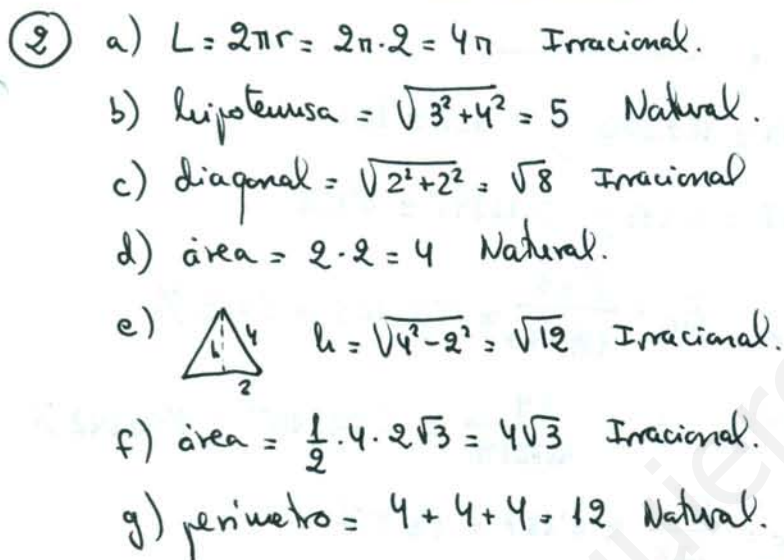 2 a) L = 2πr = 2π·2 = 4π Irracional.
b) hipotenusa = √(3²+4²) = 5 Natural.
c) diagonal = √(2²+2²) = √8 Irracional
d) área = 2·2 = 4 Natural.
e) h 4 2 h = √(4²-2²) = √12 Irracional.
f) área = 1/2·4·2√3 = 4√3 Irracional.
g) perímetro = 4+4+4 = 12 Natural.